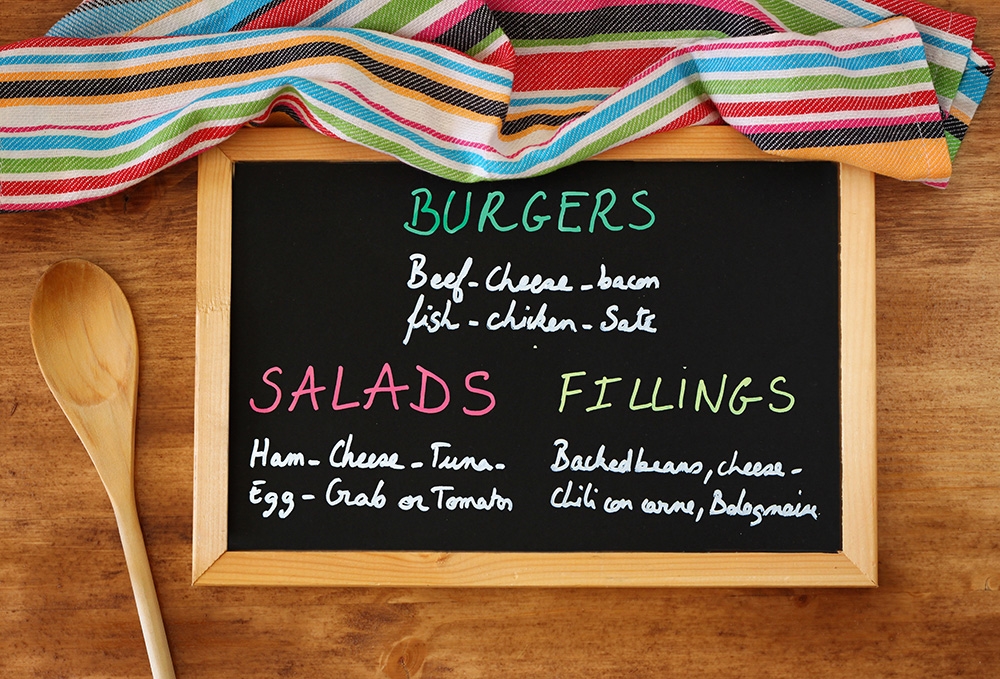 BURGERS
Beef - Cheese - bacon
fish - chicken - Sate
SALADS
Ham - Cheese - Tuna -
Egg - Grab or Tomato
FILLINGS
Backed beans, cheese -
Chili con carne, Bolognaise